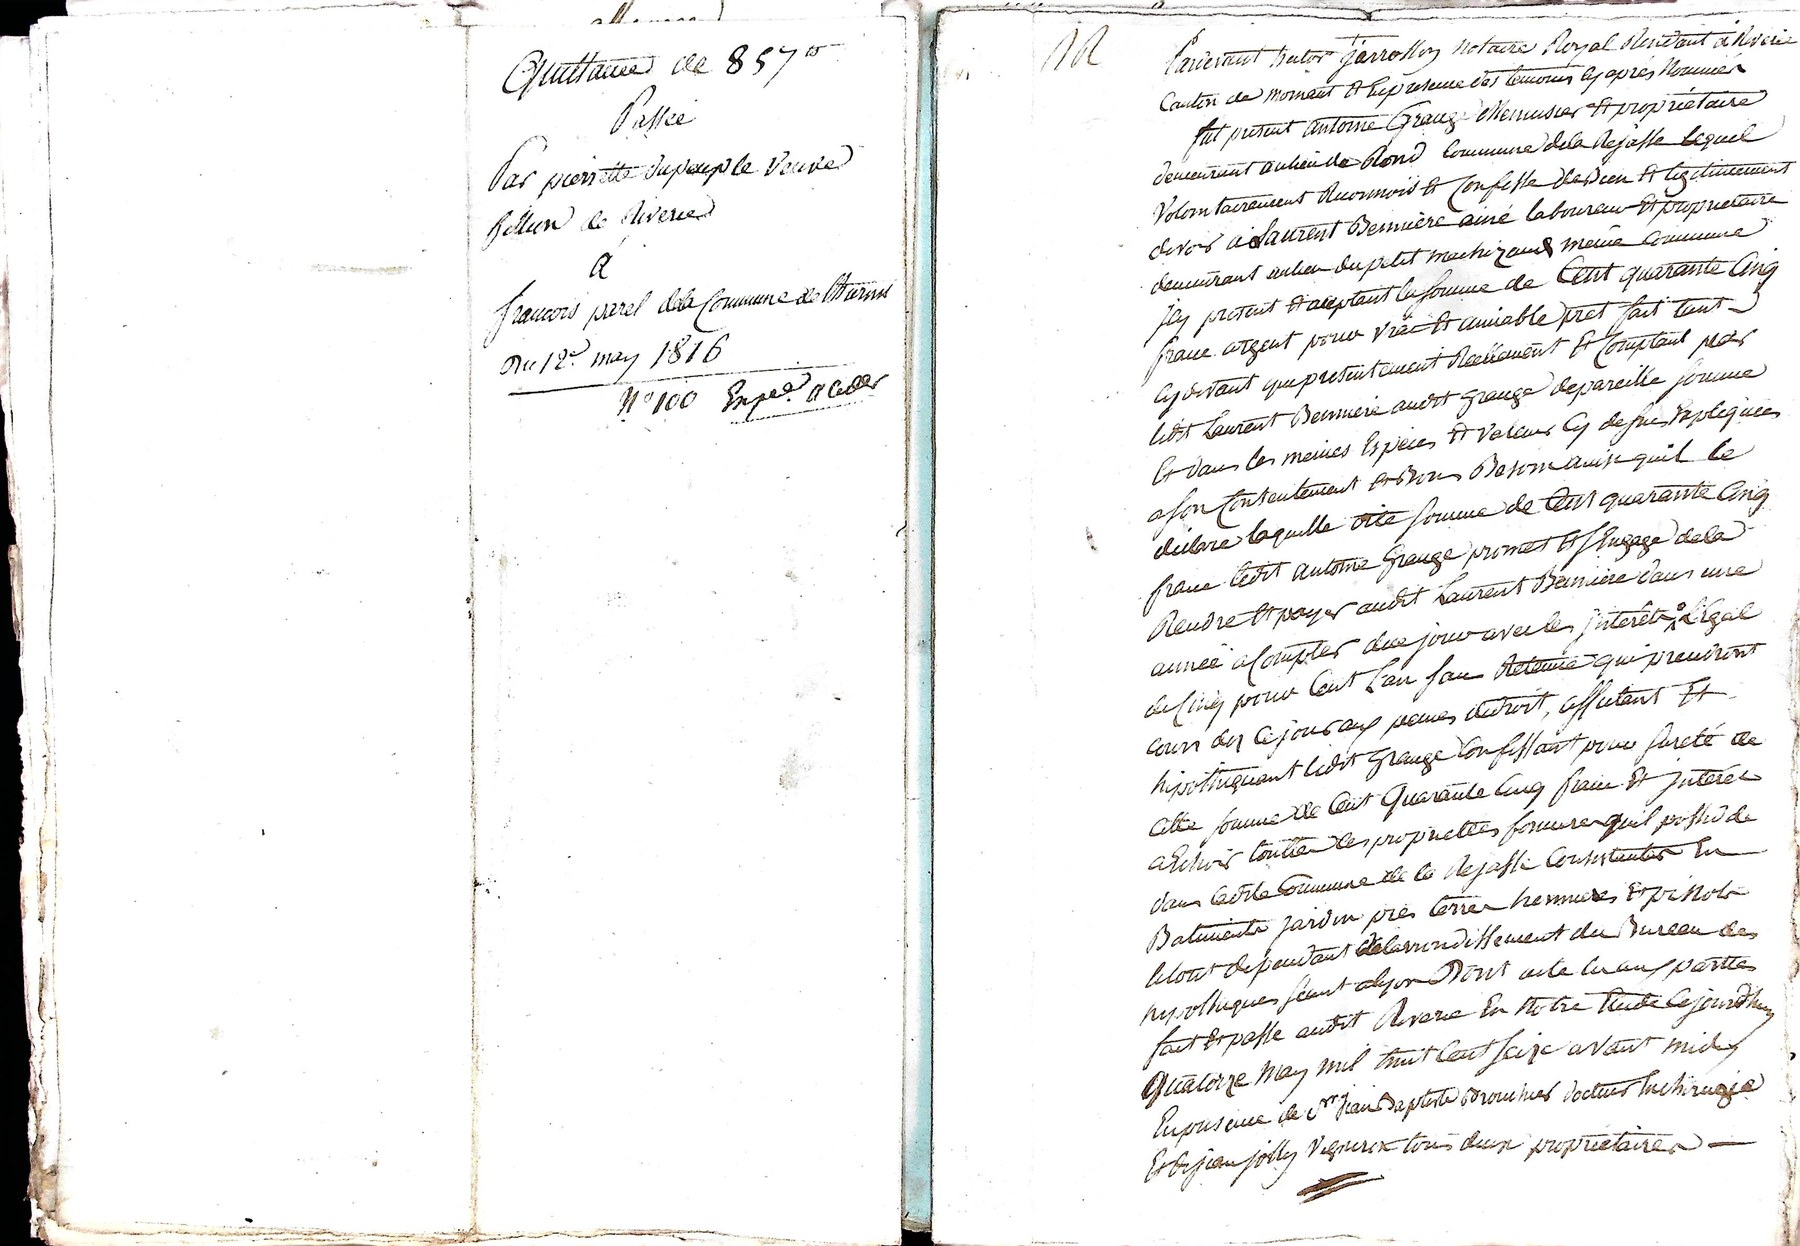 Quittance de 857 ₶
Passée
Par pierrette dupeuple veuve
fillion de Riverie
à
francois perel dela Commune de
Du 12e may 1816
N° 100 Exped.
Pardevant hector jarrosson notaire Royal Residant à Riverie
Canton de mornent Et En presence des temoins cy après Nommés
fut present antoine Grange Menuisier Et propriétaire
demeurant au lieu de Rond Commune de la Rajasse lequel
Volontairement Reconnoit & Confesse de Bien & legitimement
devoir à Laurent Bennière ainé laboureur Et propriétaire
demeurant au lieu du petit même Commune
Jcy présent Et aceptant la somme de Cent quarante Cinq
franc argent pour vrai Et amiable pret fait tant
Cy devant que presentement Reellement Et Comptant par
ledt Laurent Bennière audit Grange de pareille somme
Et dans les memes Espèces Et valeurs Cy dessus Expliquées
a son Contentement Et Bons Besoin ainsi quil le
déclare laquelle dite somme de Cent quarante Cinq
franc ledit antoine Grange promet Et sengage de la
Rendre Et payer audit Laurent Bennière dans une
année a Compter de ce jour avec les jnterêts légal
de Cinq pour Cent lan sans Retenue qui prendront
cours des ce jour aux peines de droit, affectant Et
hipothéquant ledit Grange Confessant pour sureté de
cette somme de Cent Quarante Cinq franc Et jnterêt
a Echoir toutes les proprietées foncieres quil possède
dans ladite Commune de la Rajasse Consistantes En
Batiments jardin près terres
le tout dependant de larrondissement du Bureau des
hypothèques séant a lyon Dont acte lu aux parties
fait Et passé audit Riverie En notre Etude Cejourdhuy
Quatorze May mil huit Cent seize avant midy
En presence de Sr jean Baptiste docteur En chirurgie
Et de jean jolly vigneron tous deux propriétaires